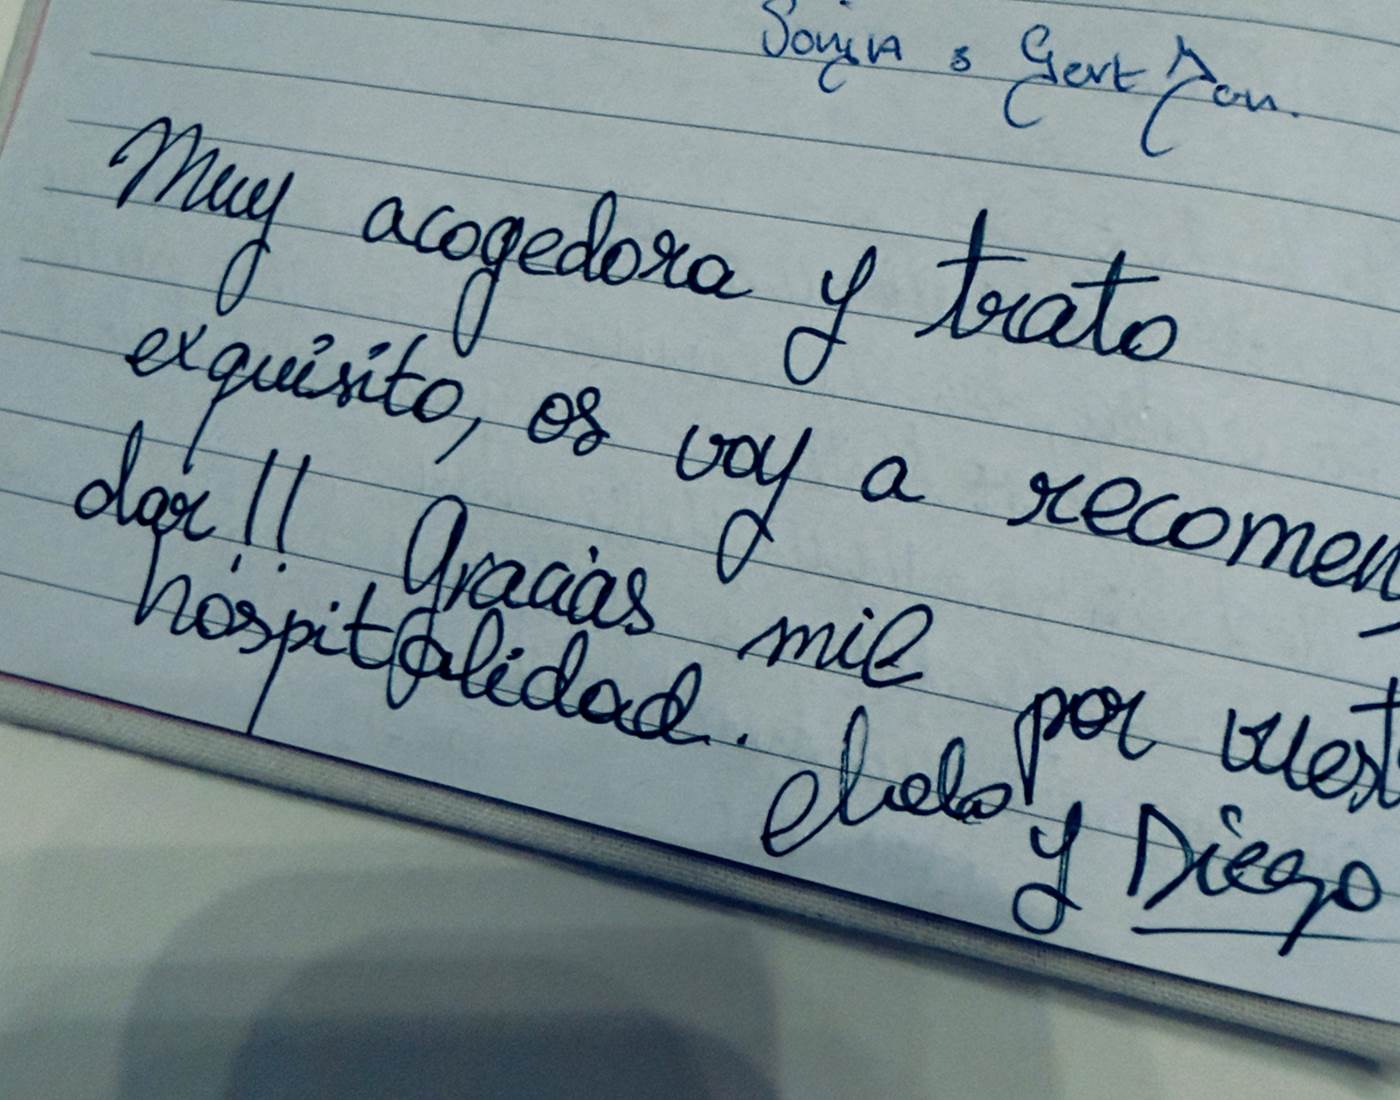 Sonja & Gert Jan.
Muy acogedora y trato
exquisito, os voy a recomen
dar!! Gracias mil por vuest
hospitalidad.
y Diego